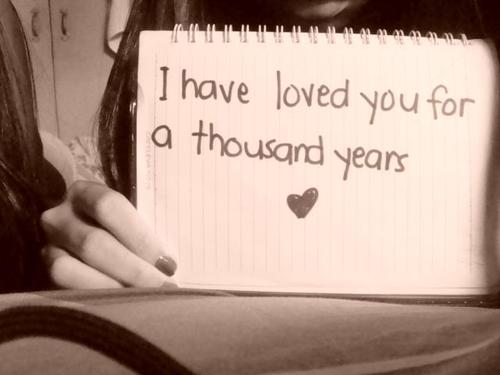 I have loved you for
a thousand years